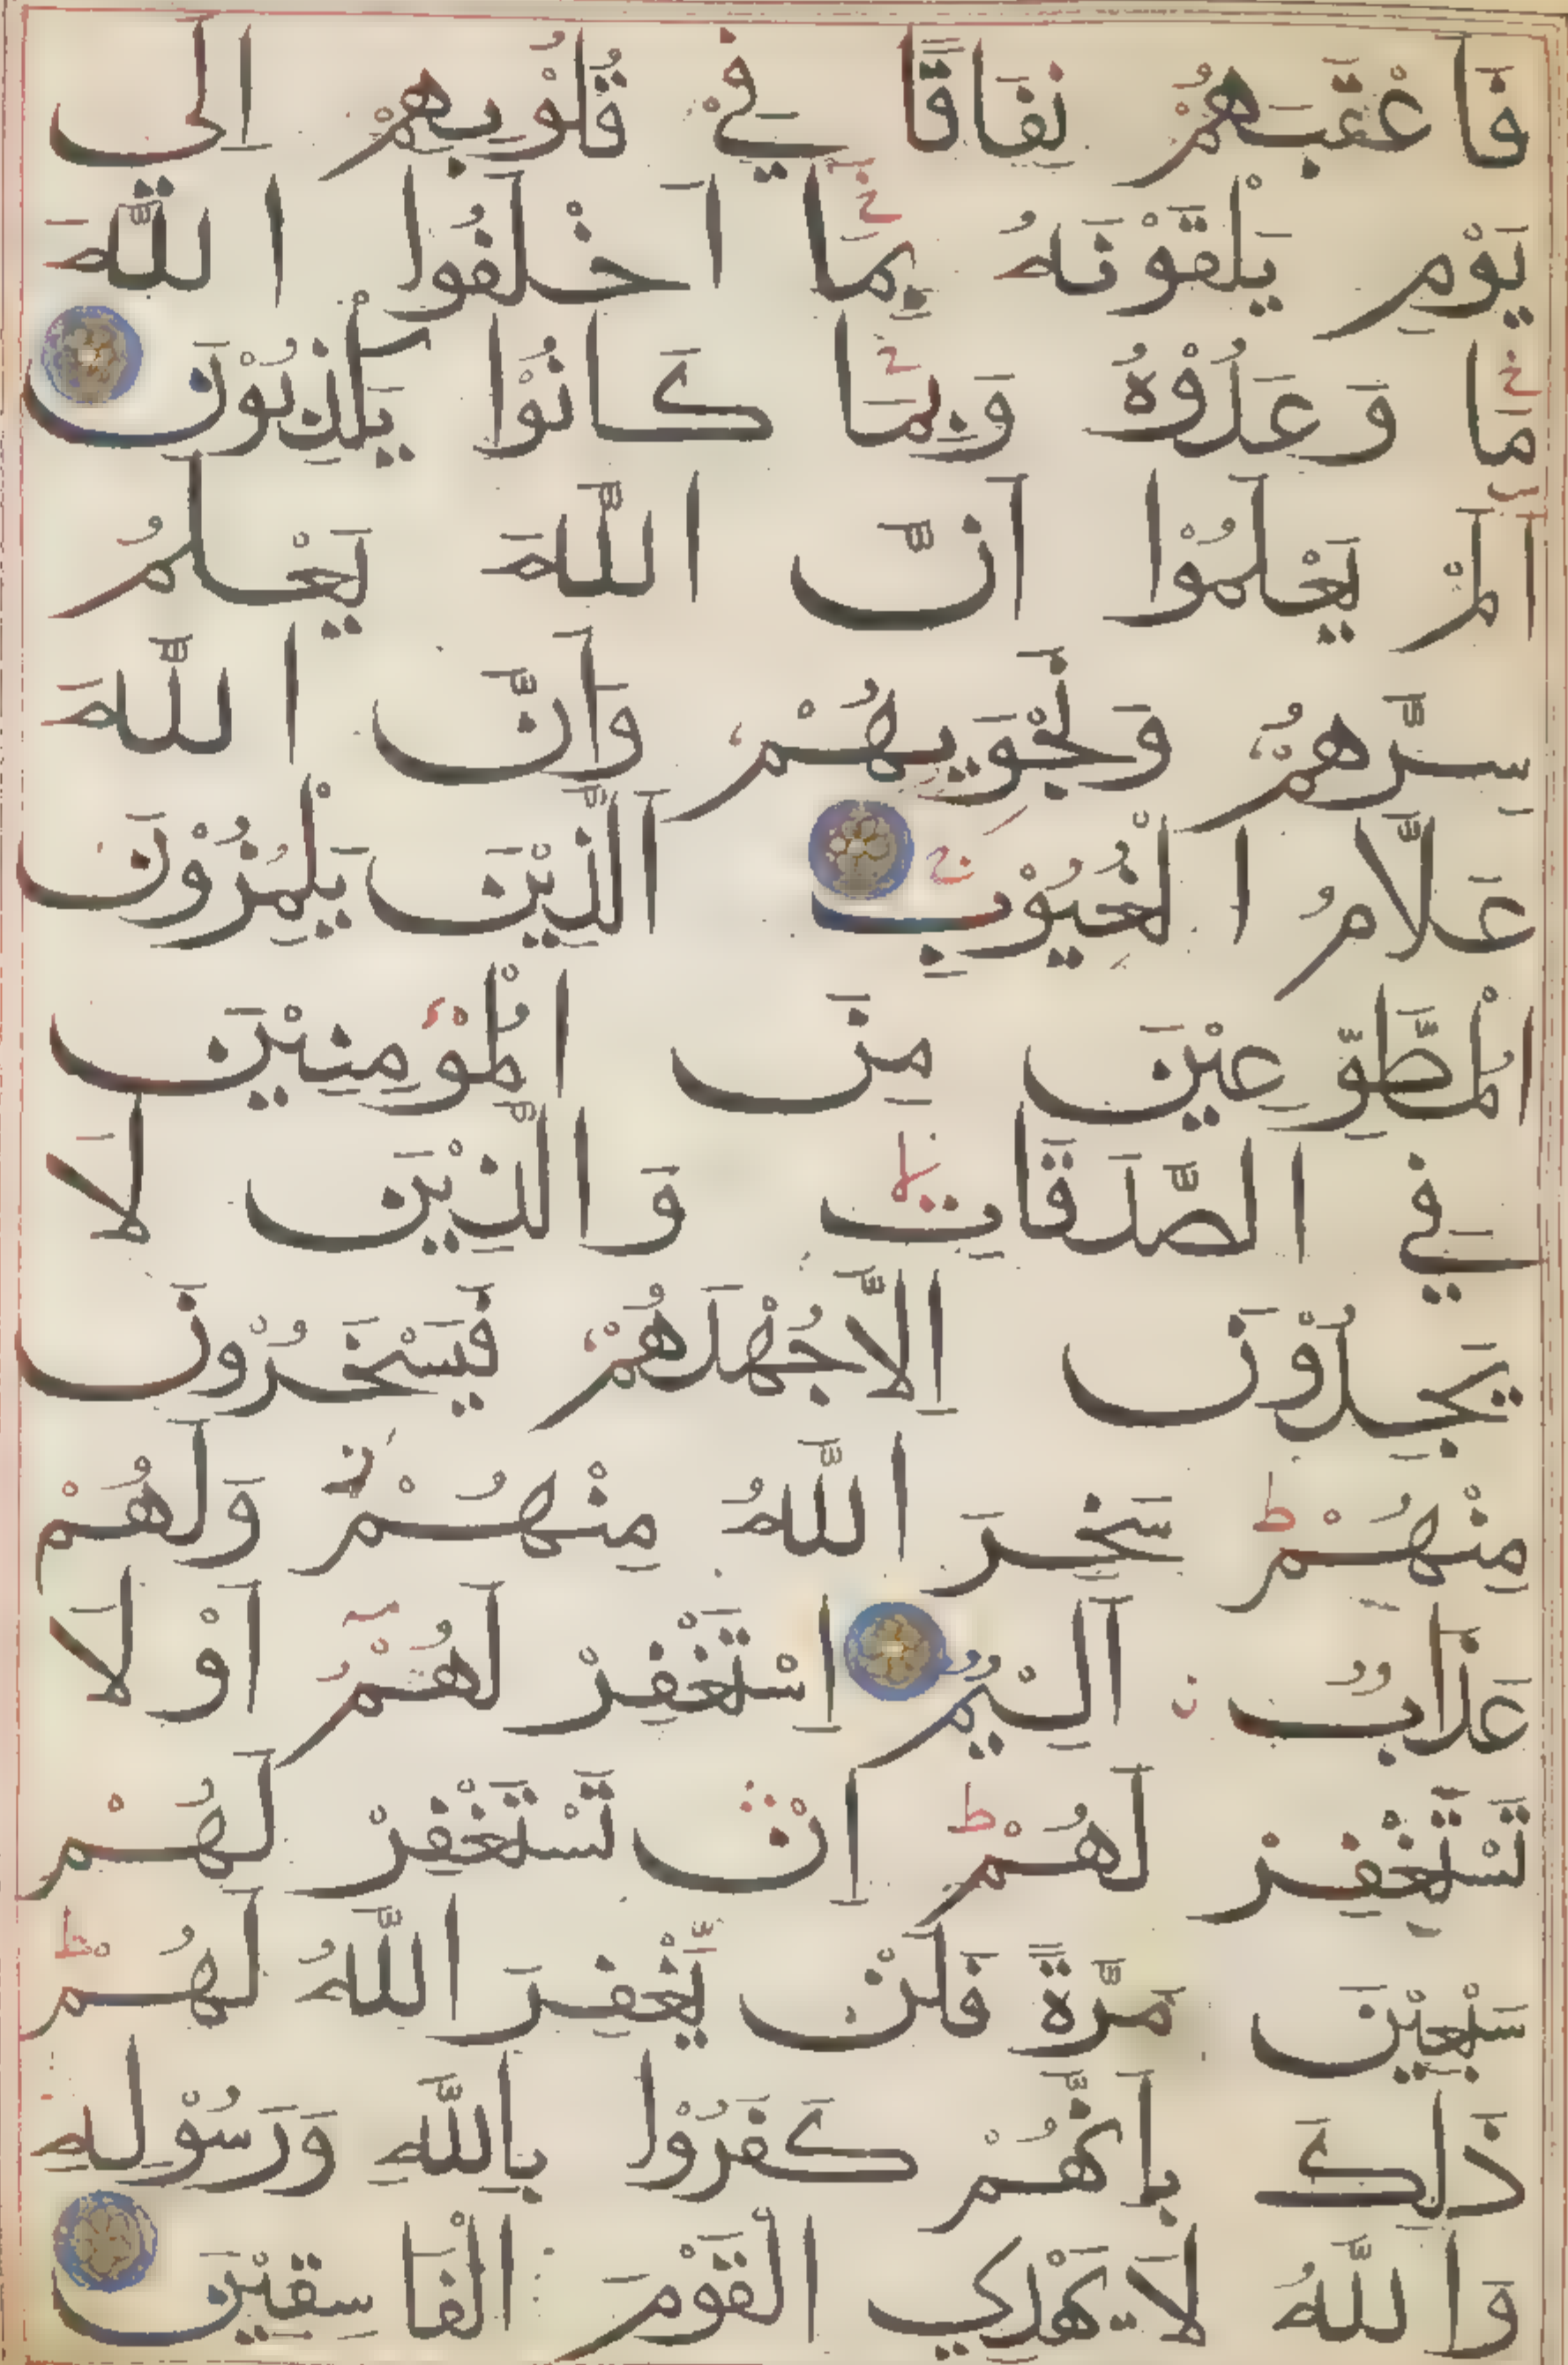 فَاَعْقَبَهُمْ نِفَاقًا فِيْ قُلُوْبِهِمْ اِلَى
يَوْمِ يَلْقَوْنَهُ بِمَا اَخْلَفُوا اللّٰهَ
مَا وَعَدُوْهُ وَبِمَا كَانُوْا يَكْذِبُوْنَ
اَلَمْ يَعْلَمُوْا اَنَّ اللّٰهَ يَعْلَمُ
سِرَّهُمْ وَنَجْوَيهُمْ وَاَنَّ اللّٰهَ
عَلَّامُ الْغُيُوْبِ اَلَّذِيْنَ يَلْمِزُوْنَ
الْمُطَّوِّعِيْنَ مِنَ الْمُؤْمِنِيْنَ
فِي الصَّدَقَاتِ وَالَّذِيْنَ لَا
يَجِدُوْنَ اِلَّا جُهْدَهُمْ فَيَسْخَرُوْنَ
مِنْهُمْ ط سَخِرَ اللّٰهُ مِنْهُمْ وَلَهُمْ
عَذَابٌ اَلِيْمٌ اِسْتَغْفِرْ لَهُمْ اَوْ لَا
تَسْتَغْفِرْ لَهُمْ ط اِنْ تَسْتَغْفِرْ لَهُمْ
سَبْعِيْنَ مَرَّةً فَلَنْ يَّغْفِرَ اللّٰهُ لَهُمْ ط
ذَلِكَ بِاَنَّهُمْ كَفَرُوْا بِاللّٰهِ وَرَسُوْلِهِ
وَاللّٰهُ لَا يَهْدِي الْقَوْمَ الْفَاسِقِيْنَ